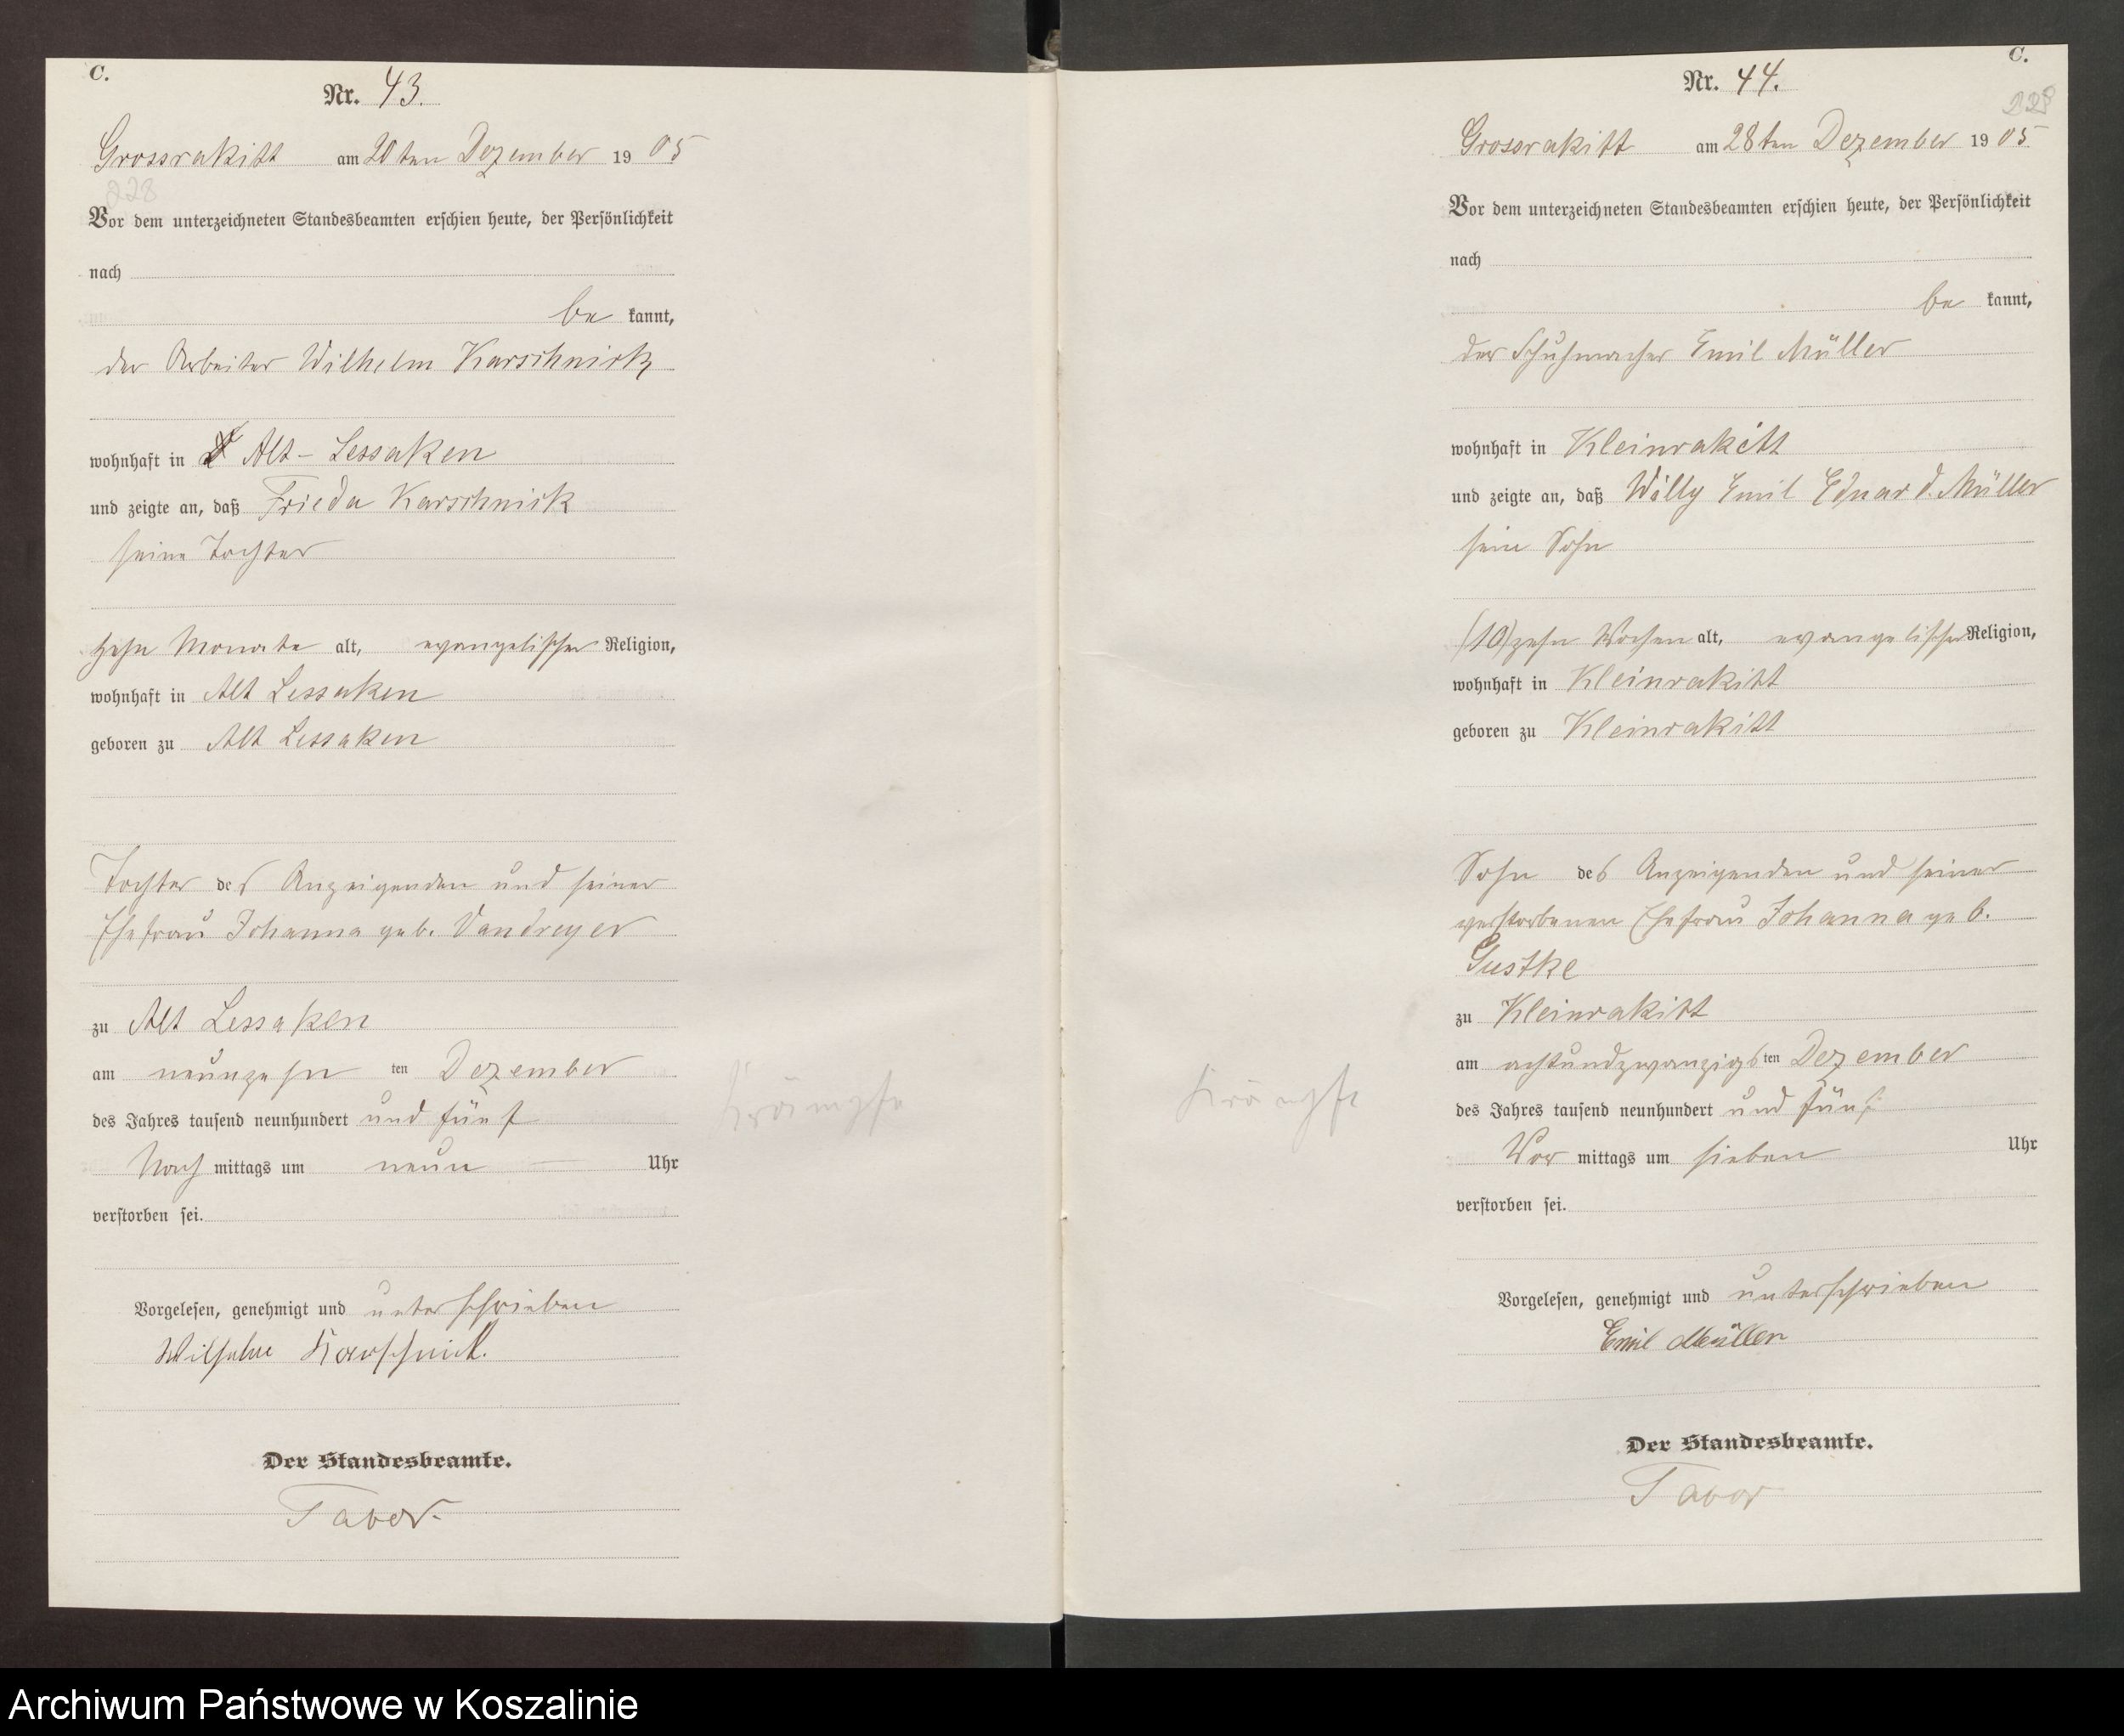 C.
Nr. 43.
Grossrakitt am 20ten Dezember 1905
228
Vor dem unterzeichneten Standesbeamten erschien heute, der Persönlichkeit
nach
be kannt,
der Arbeiter Wilhelm Karschnick
wohnhaft in Alt-Lessaken
und zeigte an, daß Frieda Karschnick
seine Tochter
zehn Monate alt, evangelischer Religion,
wohnhaft in Alt Lessaken
geboren zu Alt Lessaken
Tochter des Anzeigenden und seiner
Ehefrau Johanna geb. Vandreyer
zu Alt Lessaken
am neunzehn ten Dezember
des Jahres tausend neunhundert und fünf
Nach mittags um neun Uhr
verstorben sei.
Vorgelesen, genehmigt und unterschrieben
Wilhelm Karschnick.
Der Standesbeamte.
Tavor.
Krämpfe
C.
Nr. 44.
228
Grossrakitt am 28ten Dezember 1905
Vor dem unterzeichneten Standesbeamten erschien heute, der Persönlichkeit
nach
be kannt,
der Schuhmacher Emil Müller
wohnhaft in Kleinrakitt
und zeigte an, daß Willy Emil Eduard Müller
sein Sohn
(10) zehn Wochen alt, evangelischer Religion,
wohnhaft in Kleinrakitt
geboren zu Kleinrakitt
Sohn des Anzeigenden und seiner
verstorbenen Ehefrau Johanna geb.
Gustke
zu Kleinrakitt
am achtundzwanzigsten Dezember
des Jahres tausend neunhundert und fünf
Vor mittags um sieben Uhr
verstorben sei.
Vorgelesen, genehmigt und unterschrieben
Emil Müller
Der Standesbeamte.
Tavor
Krämpfe
Archiwum Państwowe w Koszalinie